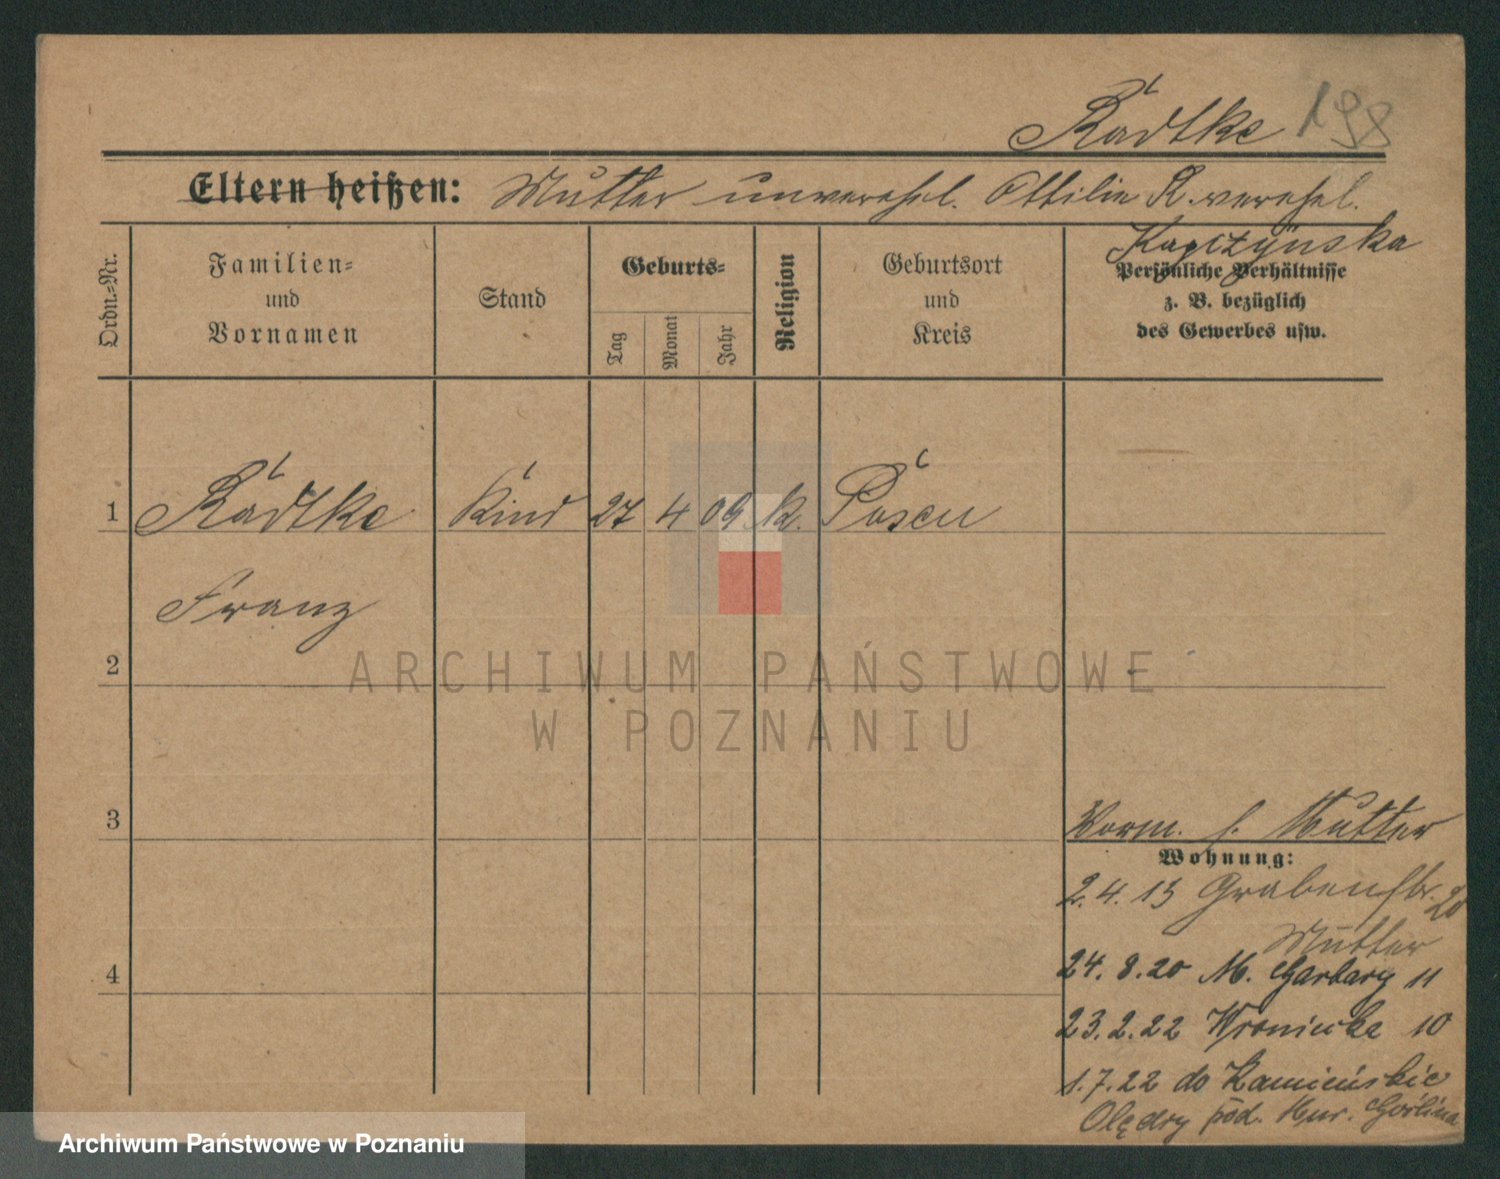 Rädtke 198
Eltern heißen: Mutter unverehel. Ottilie R. verehel.
Kapczyńska
Ordn.-Nr.
Familien-
und
Vornamen
Stand
Geburts-
Tag
Monat
Jahr
Religion
Geburtsort
und
Kreis
Persönliche Verhältnisse
z. B. bezüglich
des Gewerbes usw.
1 Rädtke Kind 27 4 09 k. Posen
Franz
2
ARCHIWUM PAŃSTWOWE
W POZNANIU
3
Vorm. s. Mutter
Wohnung:
2.4.13 Grabenstr. 20
Mutter
4
24.8.20 M. Garbary 11
23.2.22 Wroniecka 10
1.7.22 do Kamieńskie
Olędry pod. Mur. Goślina
Archiwum Państwowe w Poznaniu